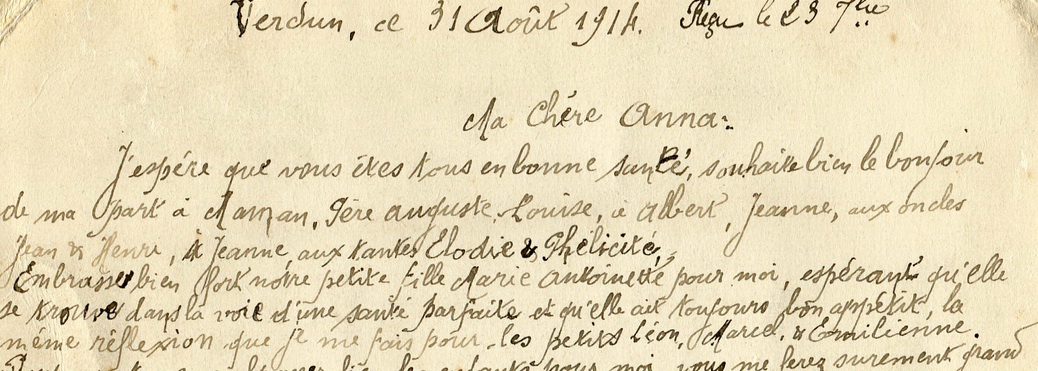 Verdun, ce 31 Août 1914. Reçu le 23 7bre
Ma Chère Anna:
J'espére que vous êtes tous en bonne santé, souhaite bien le bonjour
de ma part à Maman, Père Auguste, Louise, à Albert, Jeanne, aux oncles
Jean & Henri, à Jeanne, aux tantes Elodie & Phélicité,
Embrasse bien fort notre petite fille Marie Antoinette pour moi, espérant qu'elle
se trouve dans la voie d'une santé parfaite et qu'elle ait toujours bon appétit, la
même réflexion que je me fais pour les petits Léon, Marcel, & Emilienne.
bien les enfants pour moi, vous me ferez surement grand